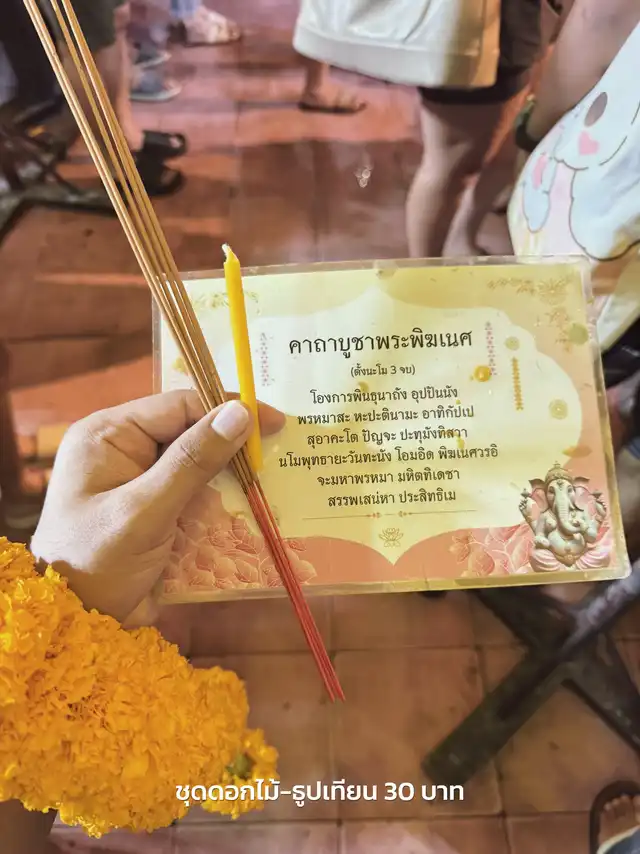 คาถาบูชาพระพิฆเนศ
(ตั้งนะโม 3 จบ)
โองการพินธุนาถัง อุปปันนัง
พรหมาสะ หะปะตินามะ อาทิกัปเป
สุอาคะโต ปัญจะ ปะทุมังทิสวา
นโมพุทธายะวันทะนัง โอมอิด พิฆเนศวรอิ
จะมหาพรหมา มหิตทิเดชา
สรรพเสน่หา ประสิทธิเม
ชุดดอกไม้-ธูปเทียน 30 บาท